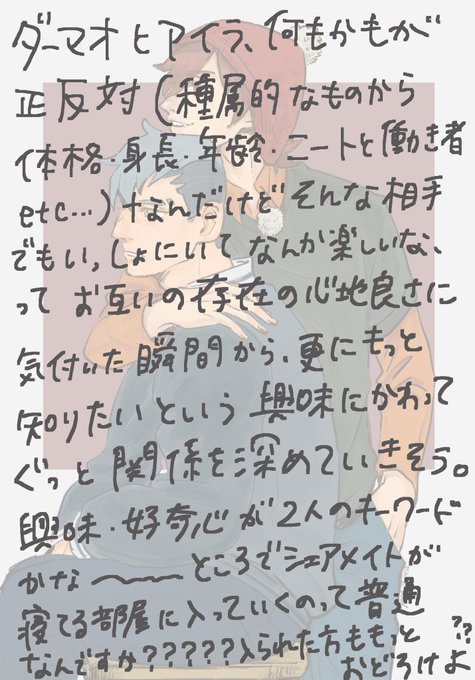 ダーマオとアイラ、何もかもが
正反対(種属的なものから
体格・身長・年齢・ニートと働き者
etc…)なんだけどそんな相手
でもいっしょにいてなんか楽しいな、
って お互いの存在の心地良さに
気付いた瞬間から、更にもっと
知りたいという興味にかわって
ぐっと関係を深めていきそう。
興味・好奇心が2人のキーワード
かな〜〜〜ところでシェアメイトが
寝てる部屋に入っていくのって普通
なんですか?????入られた方ももっと
おどろけよ??